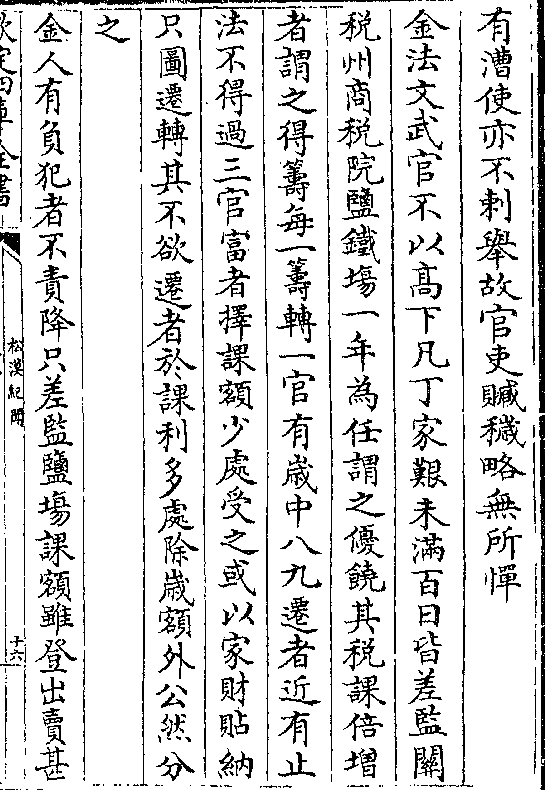 有漕使亦不刺舉故官吏贓穢略無所憚
金法文武官不以髙下凡丁家艱未滿百日皆差監關
税州商税院鹽鐵塲一年為任謂之優饒其税課倍增
者謂之得籌每一籌轉一官有嵗中八九遷者近有止
法不得過三官富者擇課額少處受之或以家財貼納
只圖遷轉其不欲遷者於課利多處除嵗額外公然分
之
金人有負犯者不責降只差監鹽塲課額雖登出賣甚
欽定四庫全書
松漠紀聞
十六